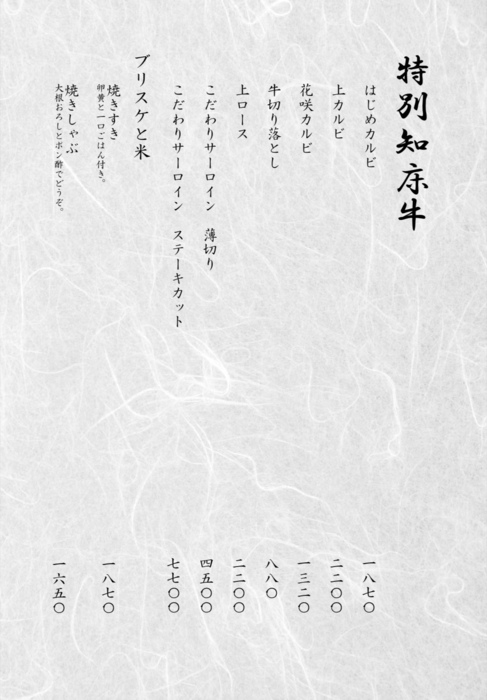 特別知床牛
はじめカルビ 一八七〇
上カルビ 二二〇〇
花咲カルビ 一三二〇
牛切り落とし 八八〇
上ロース 二二〇〇
こだわりサーロイン 薄切り 四五〇〇
こだわりサーロイン ステーキカット 七七〇〇
ブリスケと米
焼きすき 一八七〇
卵黄と一口ごはん付き。
焼きしゃぶ 一六五〇
大根おろしとポン酢でどうぞ。